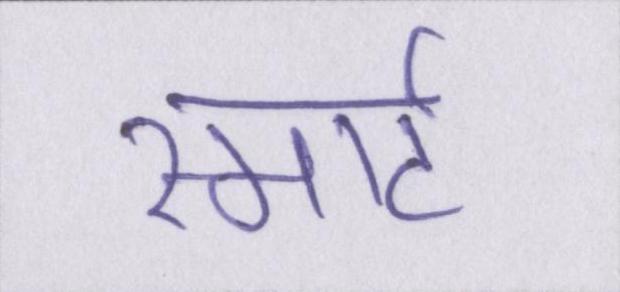 स्मार्ट